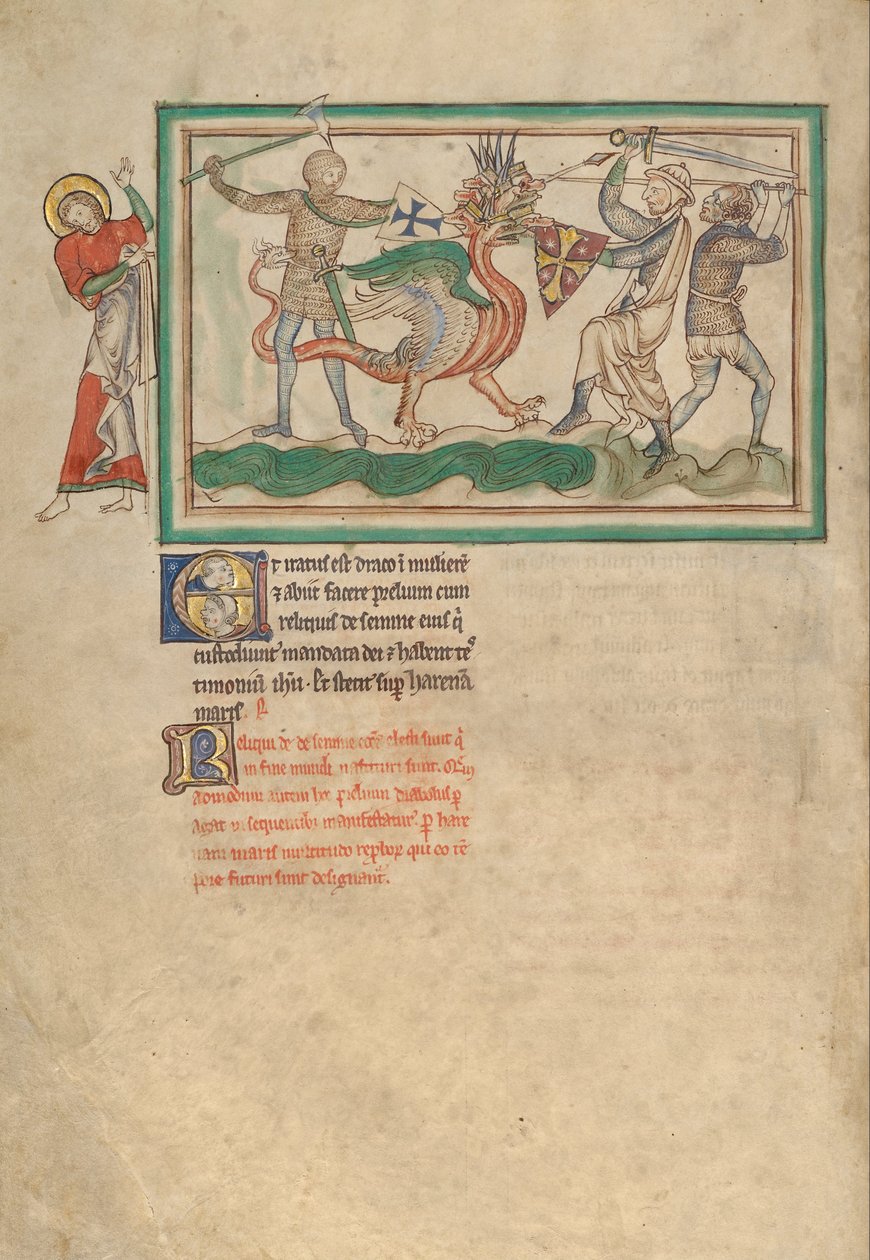 Et iratus est draco ĩ mulierē
⁊ abiit facere prelium cum
reliquis de semine eius q̇
custodiunt mandata dei ⁊ habent tes
timoniũ ihũ. Et stetit suꝑ harenã
maris. R
Reliqui de de semine electi sunt q̇
in fine mundi nascituri sunt. Quē
admodum autem hoc prelium diabolus ꝑ
agat ĩ sequentibꝰ manifestatur. ꝑ hare
nam maris multitudo reꝓboꝝ qui eo tē
pore futuri sunt designant̃.